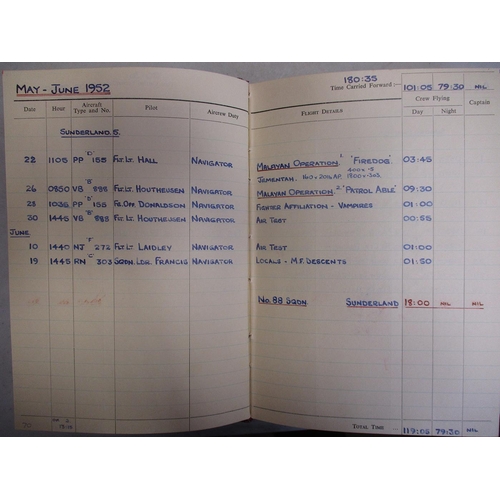 MAY - JUNE 1952
180:35
Time Carried Forward :- 101:05 79:30 NIL
Date Hour Aircraft Type and No. Pilot Aircrew Duty Flight Details Crew Flying Day Night Captain
SUNDERLAND 5.
22 1105 PP "D" 155 FLT. LT. HALL NAVIGATOR MALAYAN OPERATION 1 'FIREDOG' 03:45
JEMENTAH. 160 x 20lb AP. 400 x .5 1800 x .303
26 0850 VB "B" 888 FLT. LT. HOUTHEUSEN NAVIGATOR MALAYAN OPERATION 2 'PATROL ABLE' 09:30
28 1035 PP "D" 155 FG. OFF. DONALDSON NAVIGATOR FIGHTER AFFILIATION - VAMPIRES 01:00
30 1445 VB "B" 888 FLT. LT. HOUTHEUSEN NAVIGATOR AIR TEST 00:55
JUNE
10 1440 NJ "F" 272 FLT. LT. LAIDLEY NAVIGATOR AIR TEST 01:00
19 1445 RN "C" 303 SQDN. LDR. FRANCIS NAVIGATOR LOCALS - M.F. DESCENTS 01:50
No. 88 SQDN SUNDERLAND 18:00 NIL NIL
Total Time ... 119:05 79:30 NIL